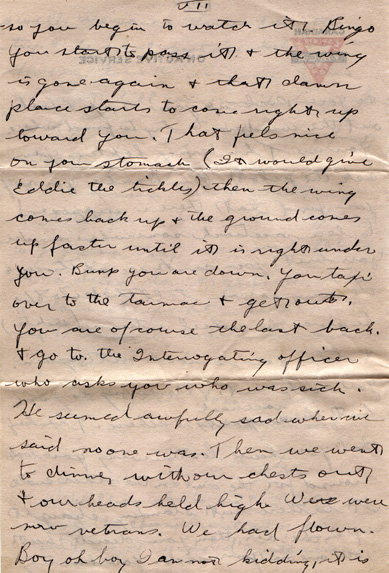 VII
so you begin to watch it. Bingo
you start to pass it & the wing
is gone again & that damn
place starts to come right up
toward you. That feels nice
on your stomach (It would give
Eddie the tickles) then the wing
comes back up & the ground comes
up faster until it is right under
you. Bump you are down. You taxi
over to the tarmac & get out.
You are of course the last back.
& go to the Interogating officer
who asks you who was sick.
He seemed awfully sad when we
said no one was. Then we went
to dinner with our chests out
& our heads held high. We were
now vetrans. We had flown.
Boy oh boy I am not kidding, it is
ON ACTIVE SERVICE